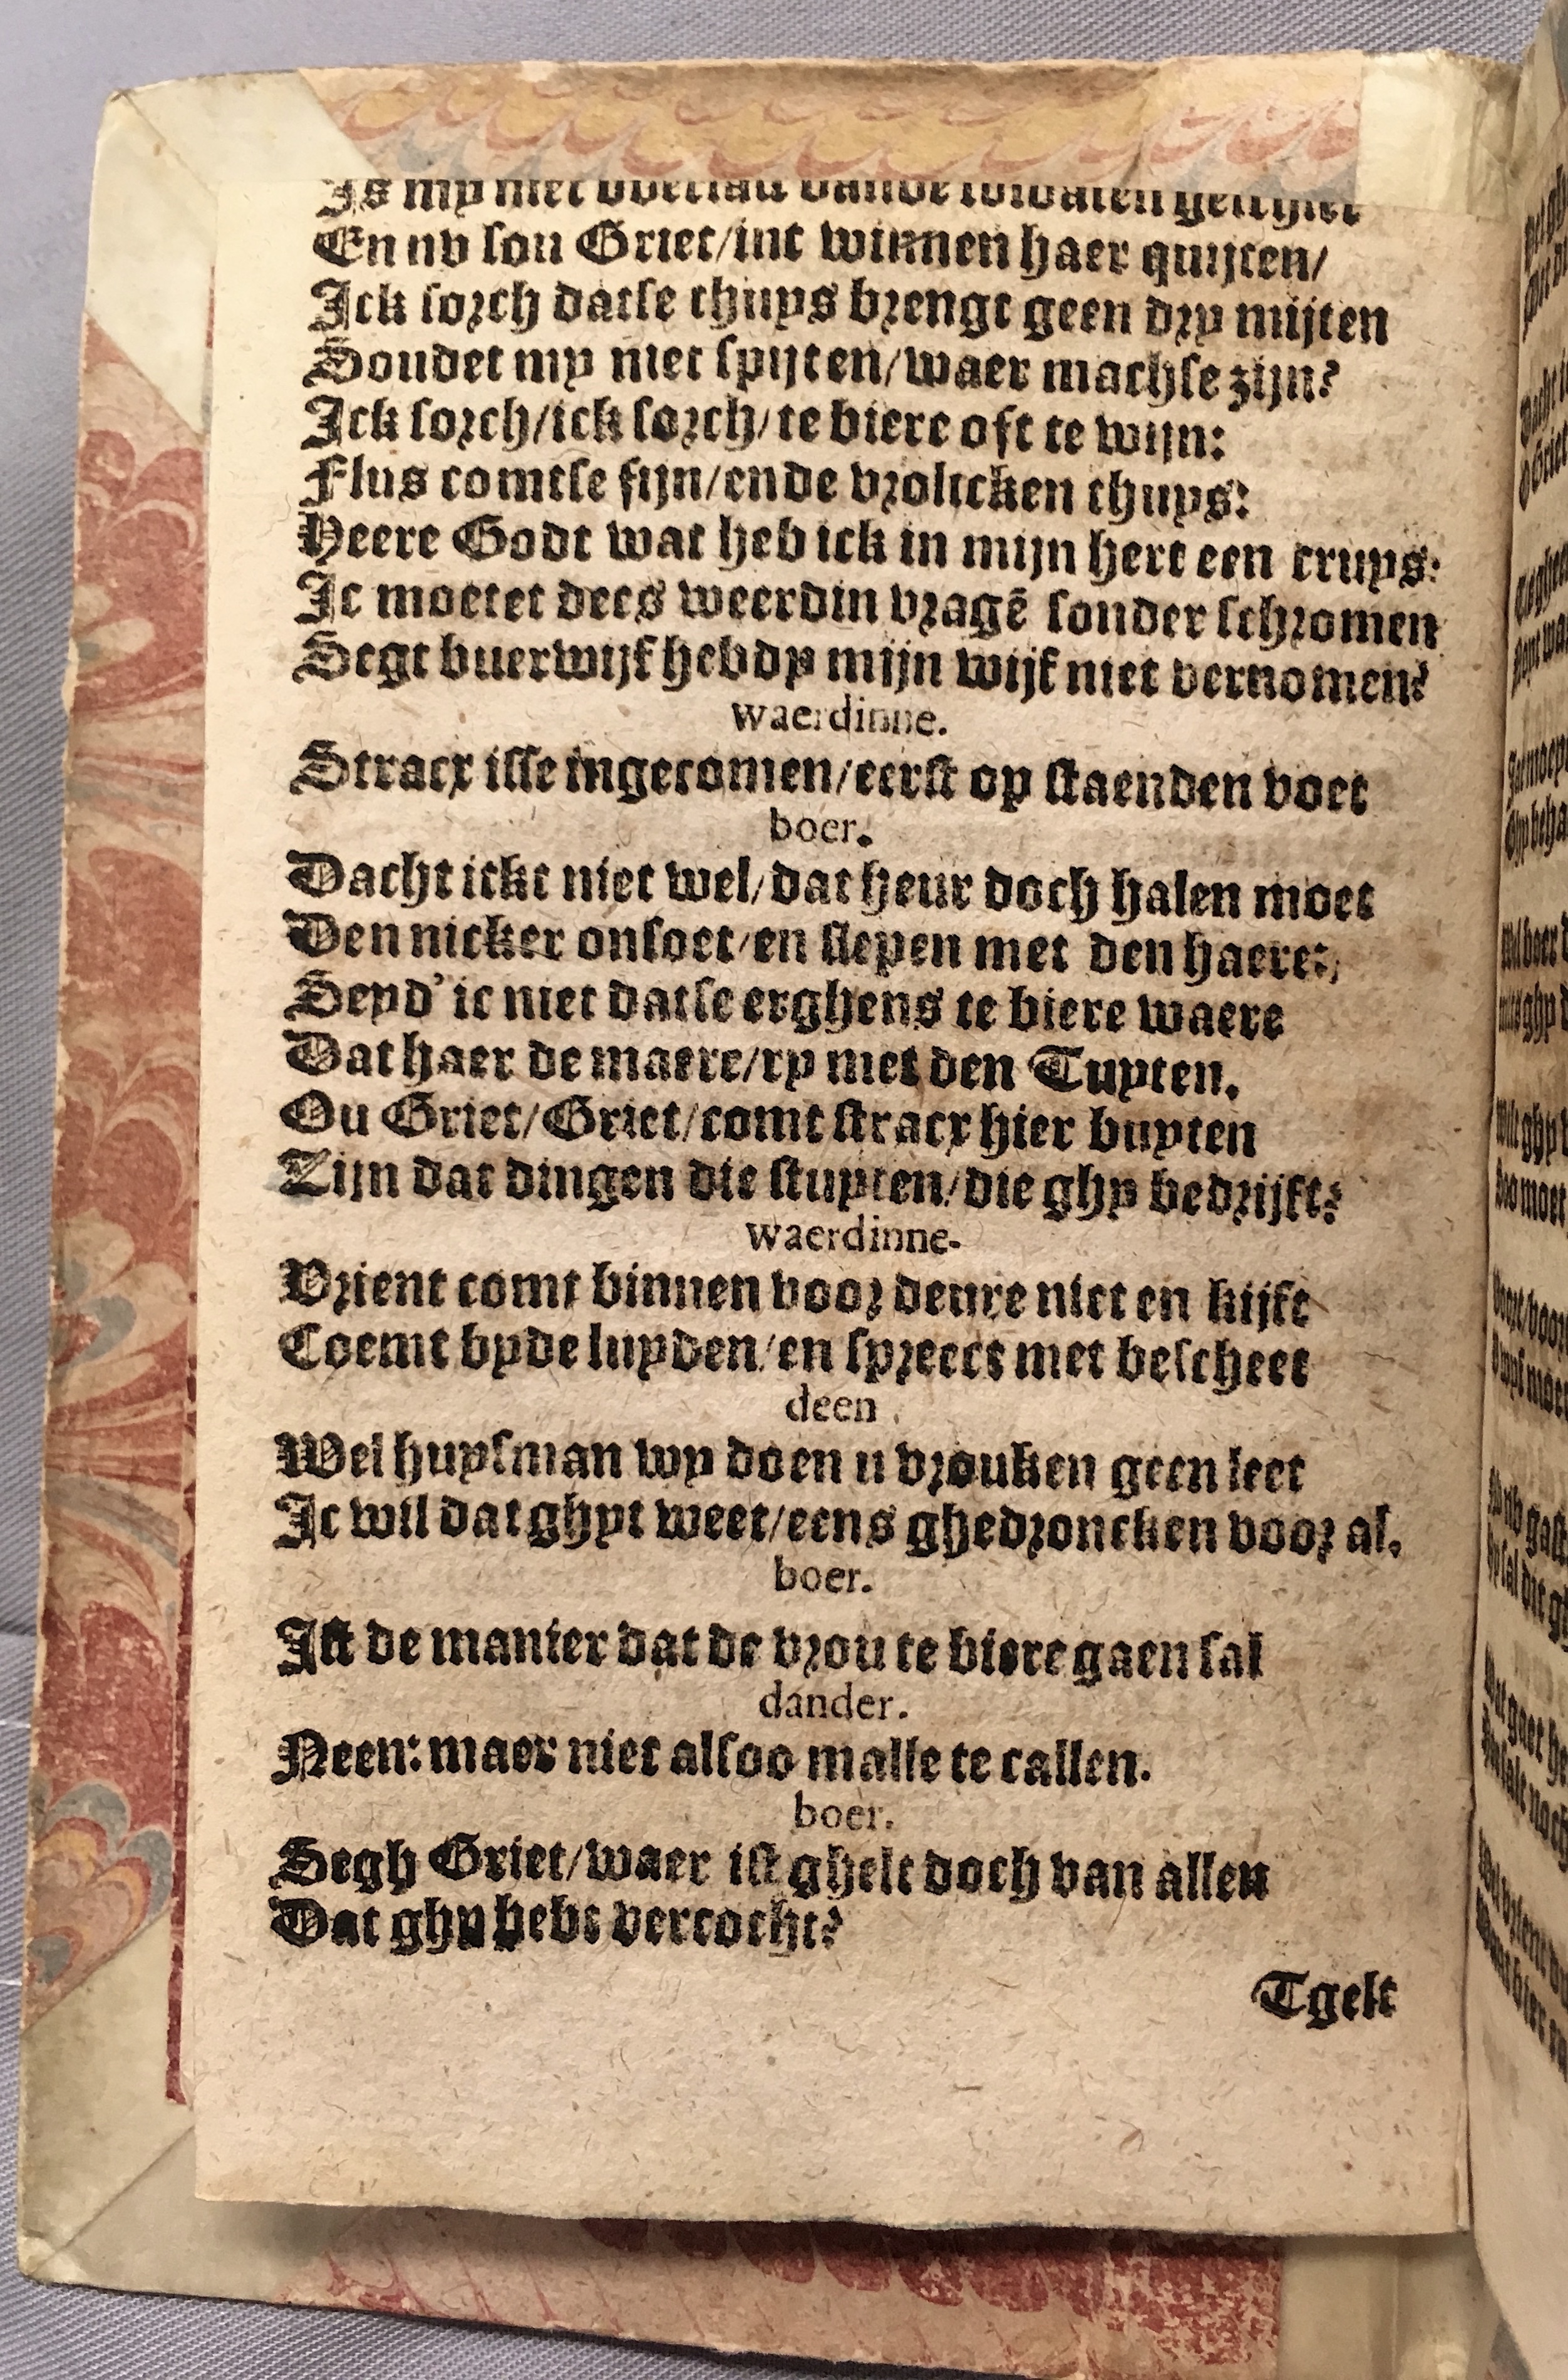 Is my niet overlast vande soldaten geschiet
En nv sou Griet/int winnen haer quijten/
Ick sorch datse thuys brengt geen dry mijten
Soudet my niet spijten/waer machse zijn?
Ick sorch/ick sorch/te biere oft te wijn:
Flus comtse fijn/ende vrolicken thuys:
Heere Godt wat heb ick in mijn hert een cruys:
Ic moetet dees weerdin vragē sonder schromen
Segt buerwijf hebdy mijn wijf niet vernomen?
waerdinne.
Stracx isse ingecomen/eerst op staenden voet
boer.
Dacht ickt niet wel/dat heur doch halen moet
Den nicker onsoet/en slepen met den haere:,
Seyd' ic niet datse erghens te biere waere
Dat haer de maere/ry met den Tuyten.
Ou Griet/Griet/comt stracx hier buyten
Zijn dat dingen die stuyten/die ghy bedrijft?
waerdinne.
Vrient comt binnen voor deure niet en kijft
Coemt byde luyden/en spreect met bescheet
deen.
Wel huysman wy doen u vrouken geen leet
Ic wil dat ghyt weet/eens ghedroncken voor al.
boer.
Ist de manier dat de vrou te biere gaen sal
dander.
Neen: maer niet alsoo malle te callen.
boer.
Segh Griet/waer ist ghelt doch van allen
Dat ghy hebt vercocht?
Tgelt